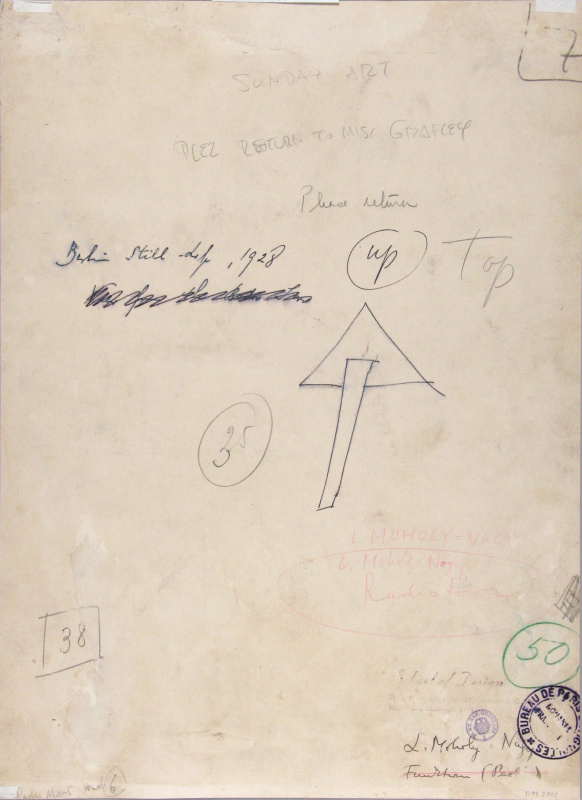 7
SUNDAY ART
PLEZ RETURN TO MISS GRAFLEY
Please return
Berlin Still 1928
up
Top
35
L MOHOLY=NAGY
L. Moholy-Nagy
Radio Tower
38
50
School of Design
BUREAU DE PARIS
L. Moholy=Nagy
Funkturm (Berlin)
6